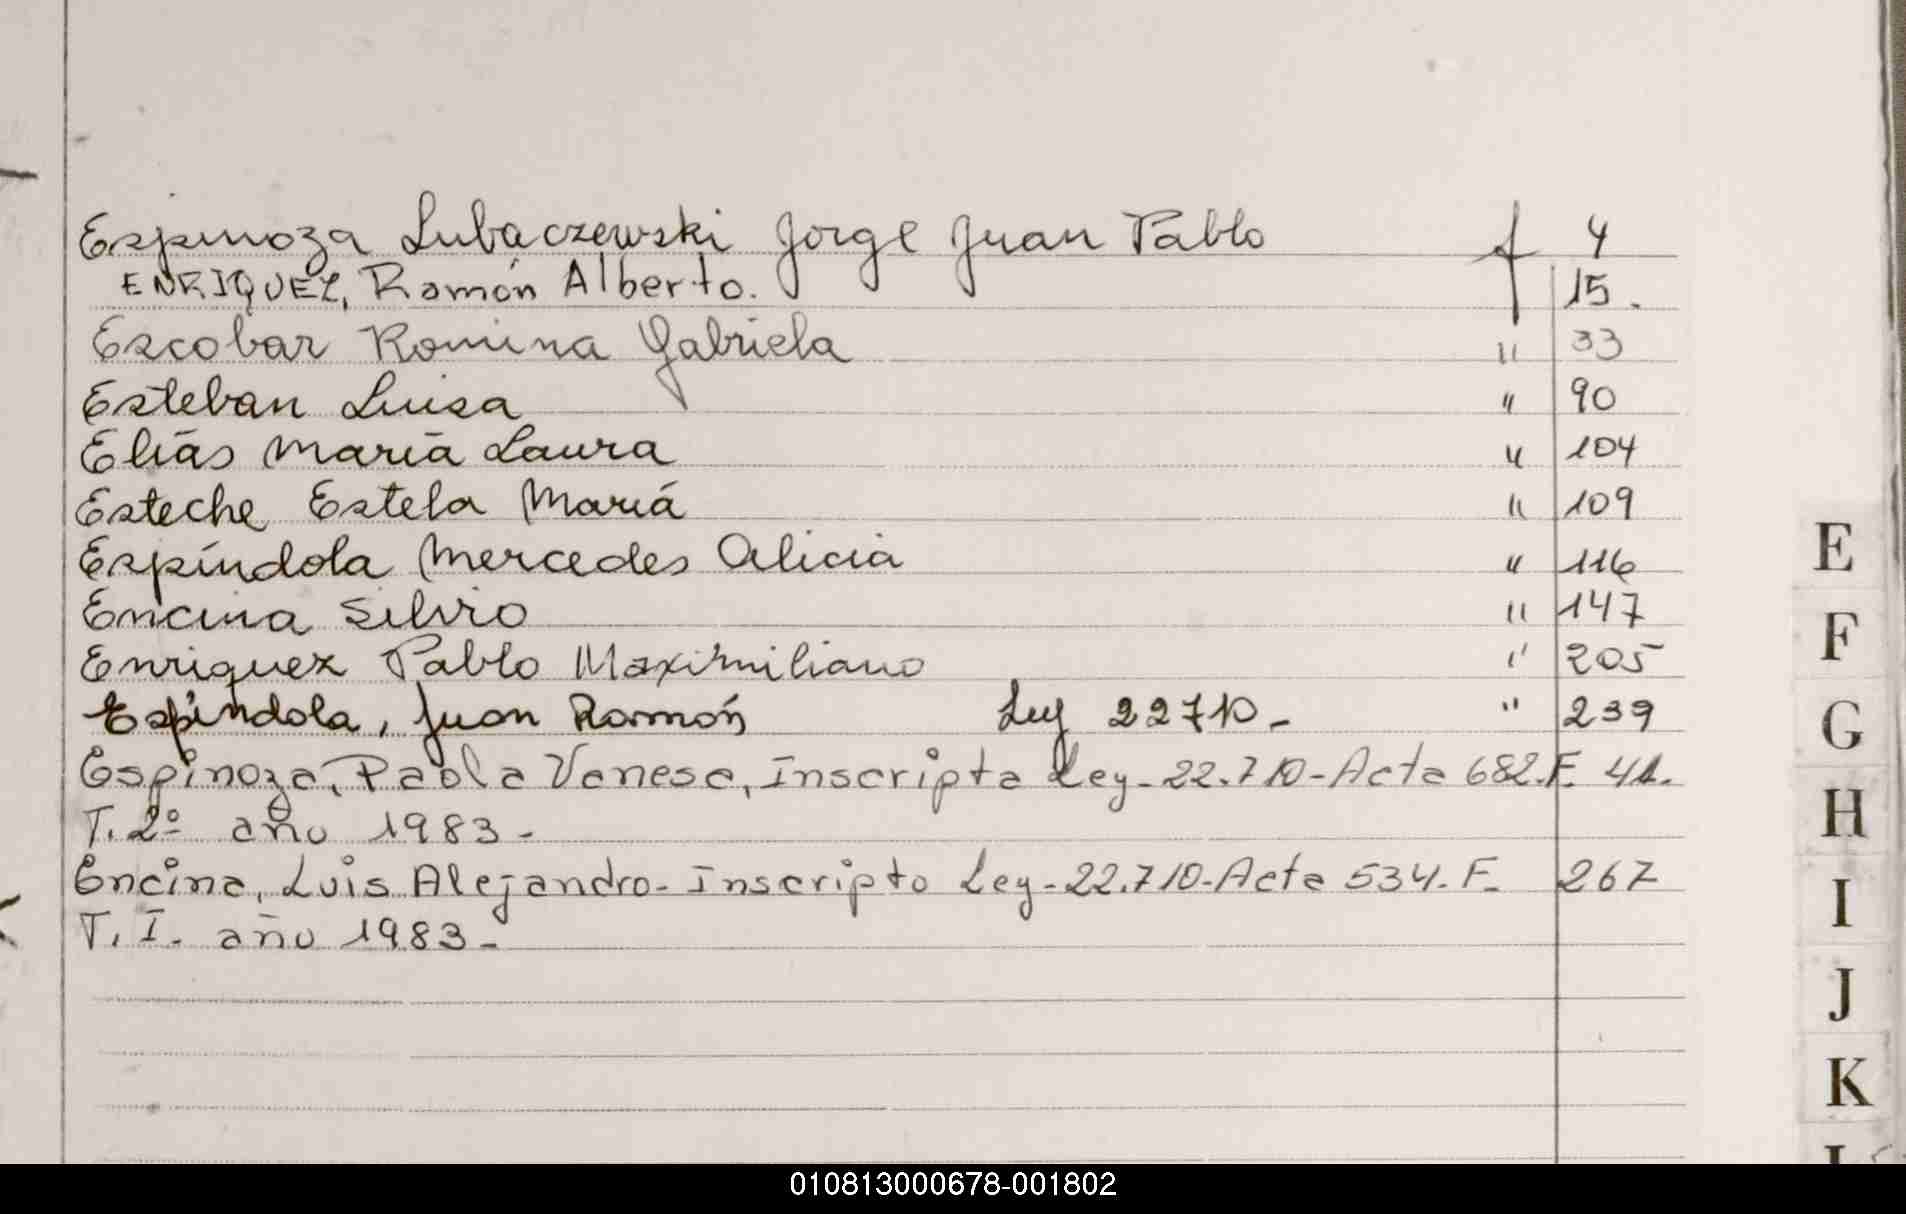 Espinoza Lubaczewski Jorge Juan Pablo f 4
ENRIQUEZ, Ramón Alberto. 15.
Escobar Romina Gabriela " 33
Esteban Luisa " 90
Elías María Laura " 104
Esteche Estela María " 109
Espíndola Mercedes Alicia " 116
Encina Silvio " 147
Enriquez Pablo Maximiliano " 205
Espíndola, Juan Ramón Ley 22710.- " 239
Espinoza, Paola Vanesa, Inscripta Ley-22.710-Acta 682.F. 41.
T. 2º año 1983-
Encina, Luis Alejandro-Inscripto Ley-22.710-Acta 534.F. 267
T. I. año 1983-
E
F
G
H
I
J
K
010813000678-001802